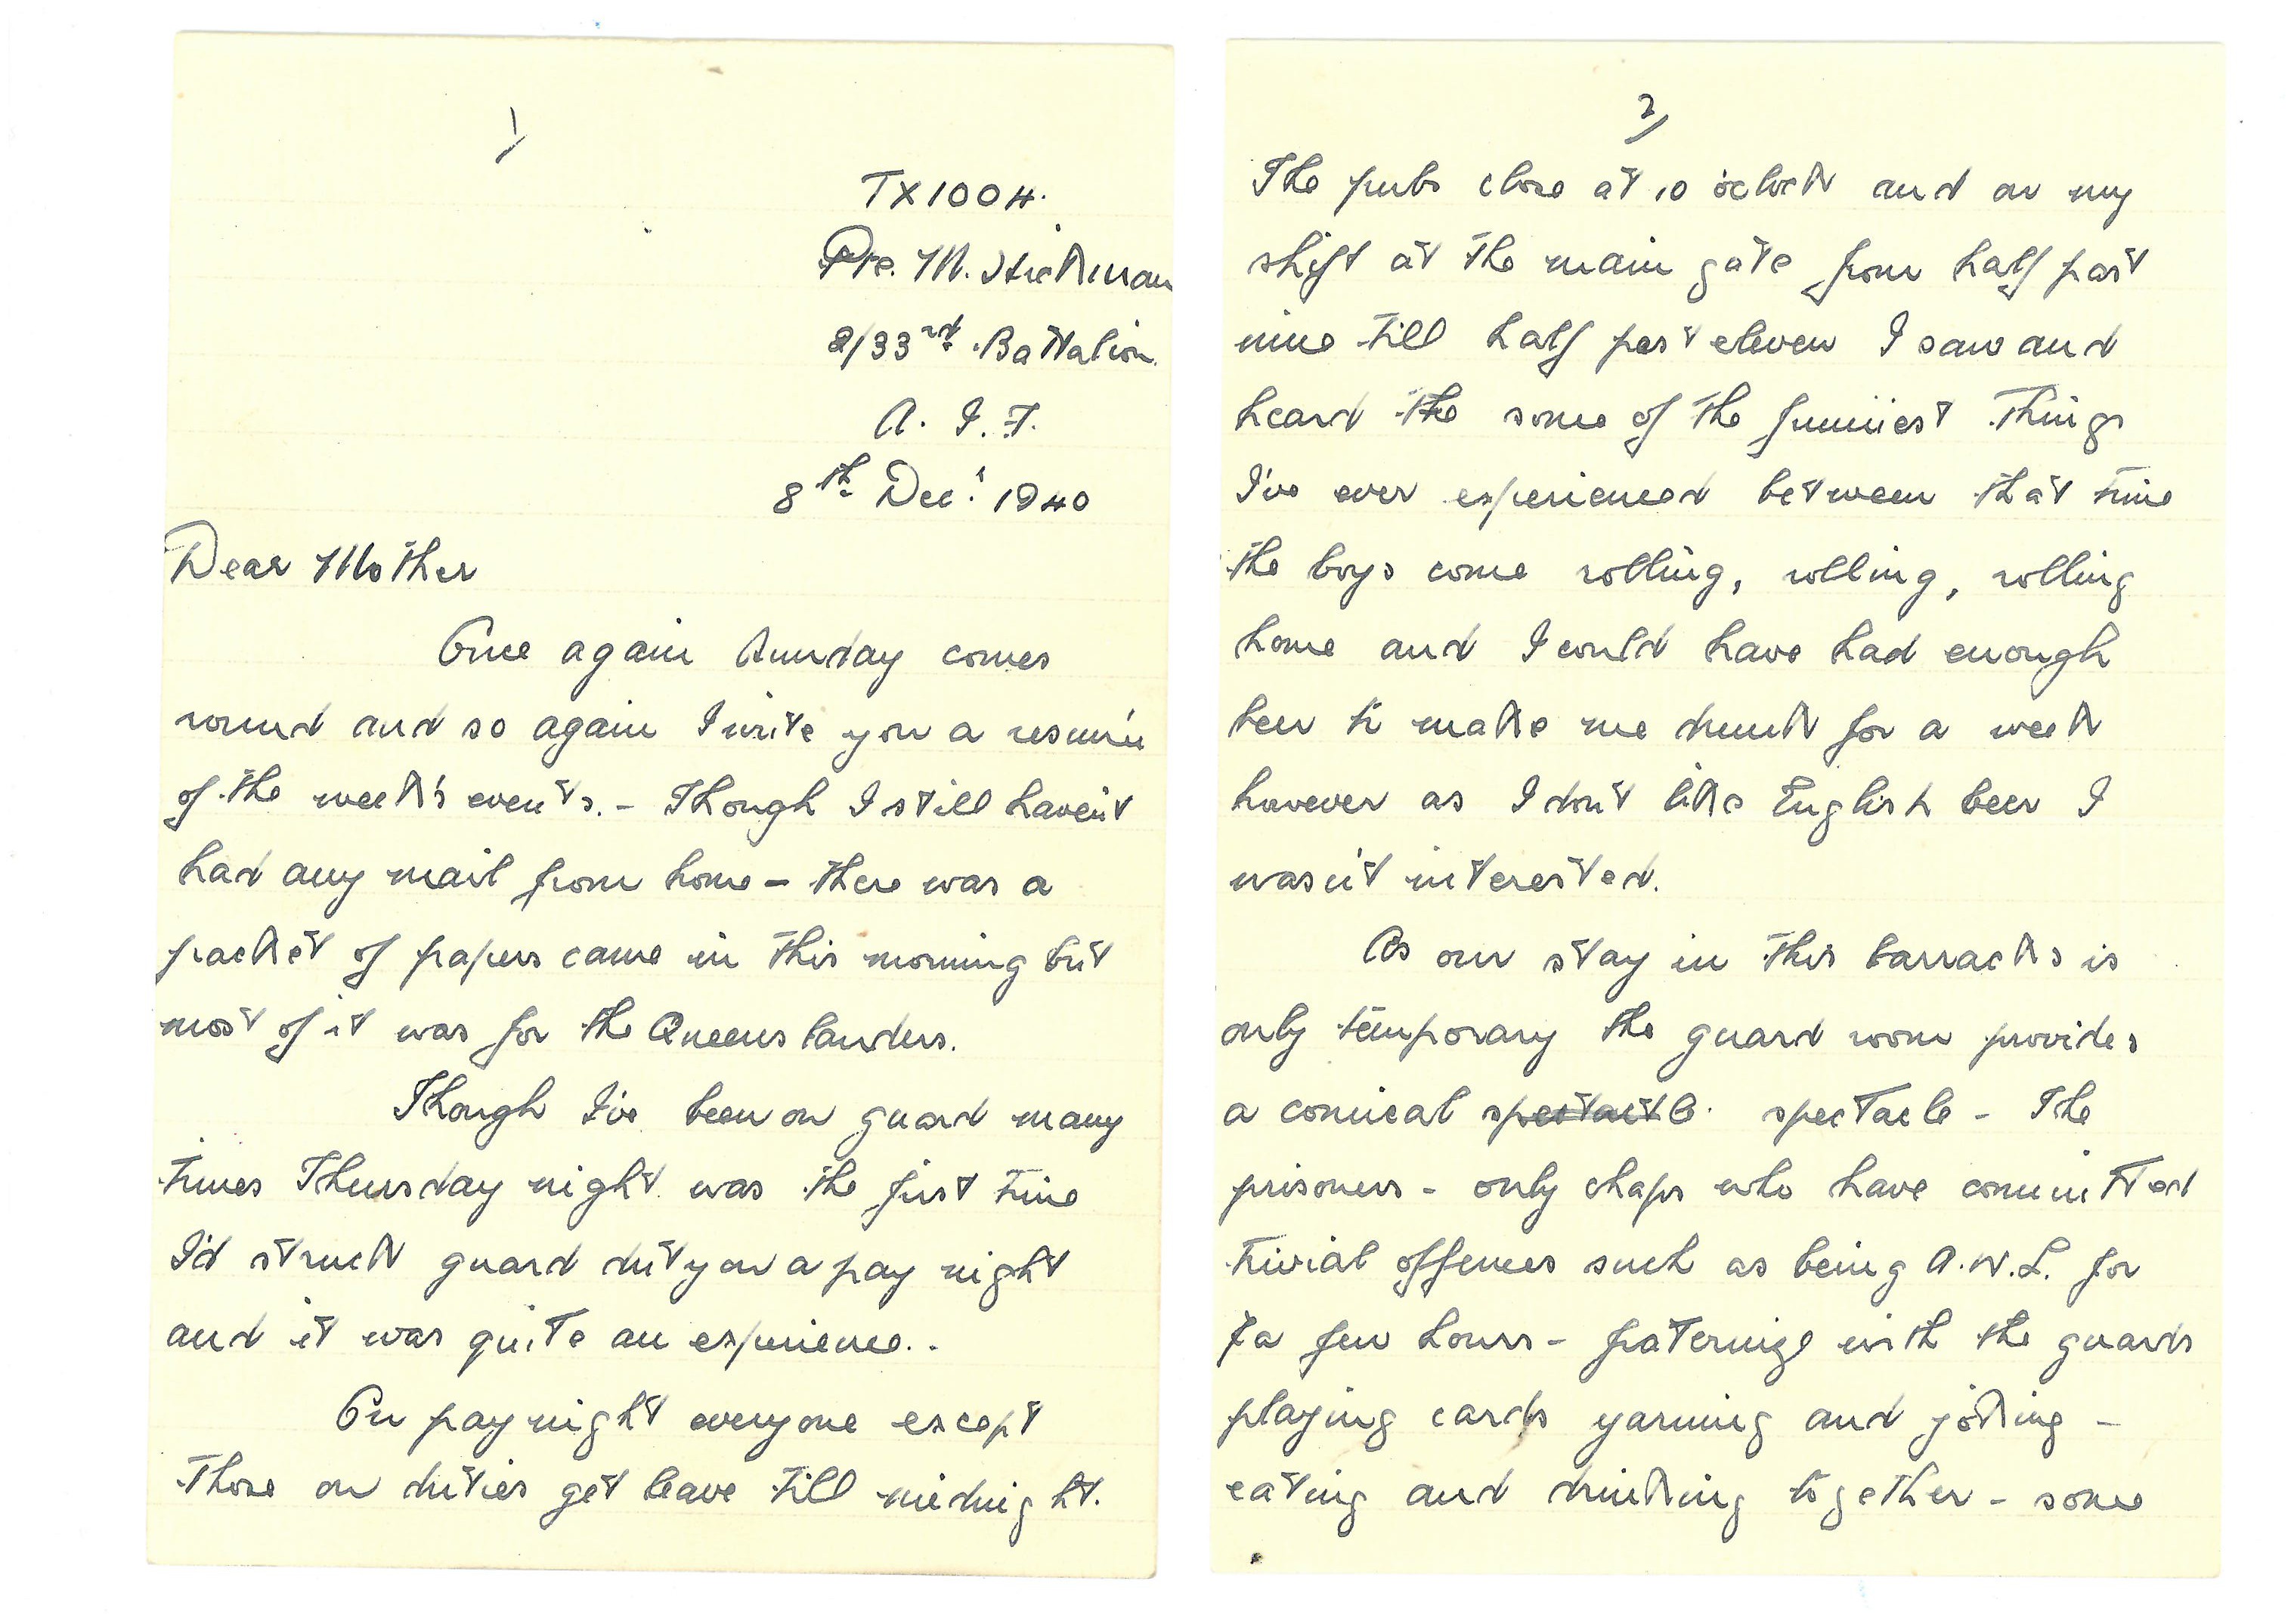 1/
TX1004.
Pte. M. Hickman
2/33rd. Battalion.
A. I. F.
8th Dec. 1940
Dear Mother
Once again Sunday comes
round and so again I write you a resumé
of the week's events. - Though I still haven't
had any mail from home - there was a
packet of papers came in this morning but
most of it was for the Queenslanders.
Though I've been on guard many
times Thursday night was the first time
I'd struck guard duty on a pay night
and it was quite an experience..
On pay night everyone except
those on duties get leave till midnight.
2/
The pubs close at 10 o'clock and on my
shift at the main gate from half past
nine till half past eleven I saw and
heard the some of the funniest things
I've ever experienced between that time
the boys come rolling, rolling, rolling
home and I could have had enough
beer to make me drunk for a week
however as I don't like English beer I
wasn't interested.
As our stay in this barracks is
only temporary the guard room provides
a comical spectacle - The
prisoners - only chaps who have committed
trivial offences such as being A.W.L. for
a few hours - fraternize with the guards
playing cards yarning and joking -
eating and drinking together - some